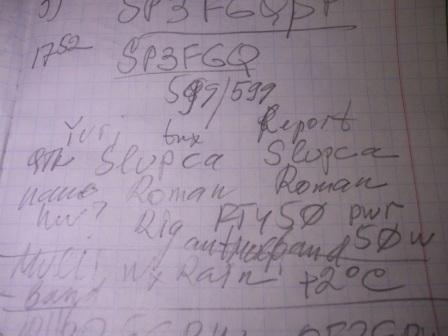 SP3FGQ/P
17 52 SP3FGQ
599/599
Yuri tnx Report
QTH Slupca Slupca
name Roman Roman
hw? Rig FT450 pwr
50w
Multi Wx Rain +2°C
- Band